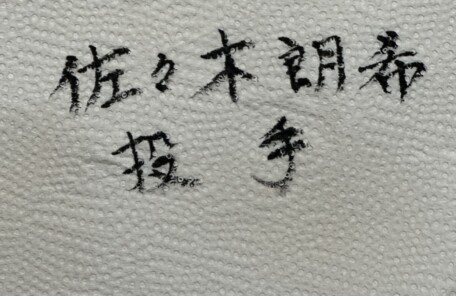 佐々木朗希
投手